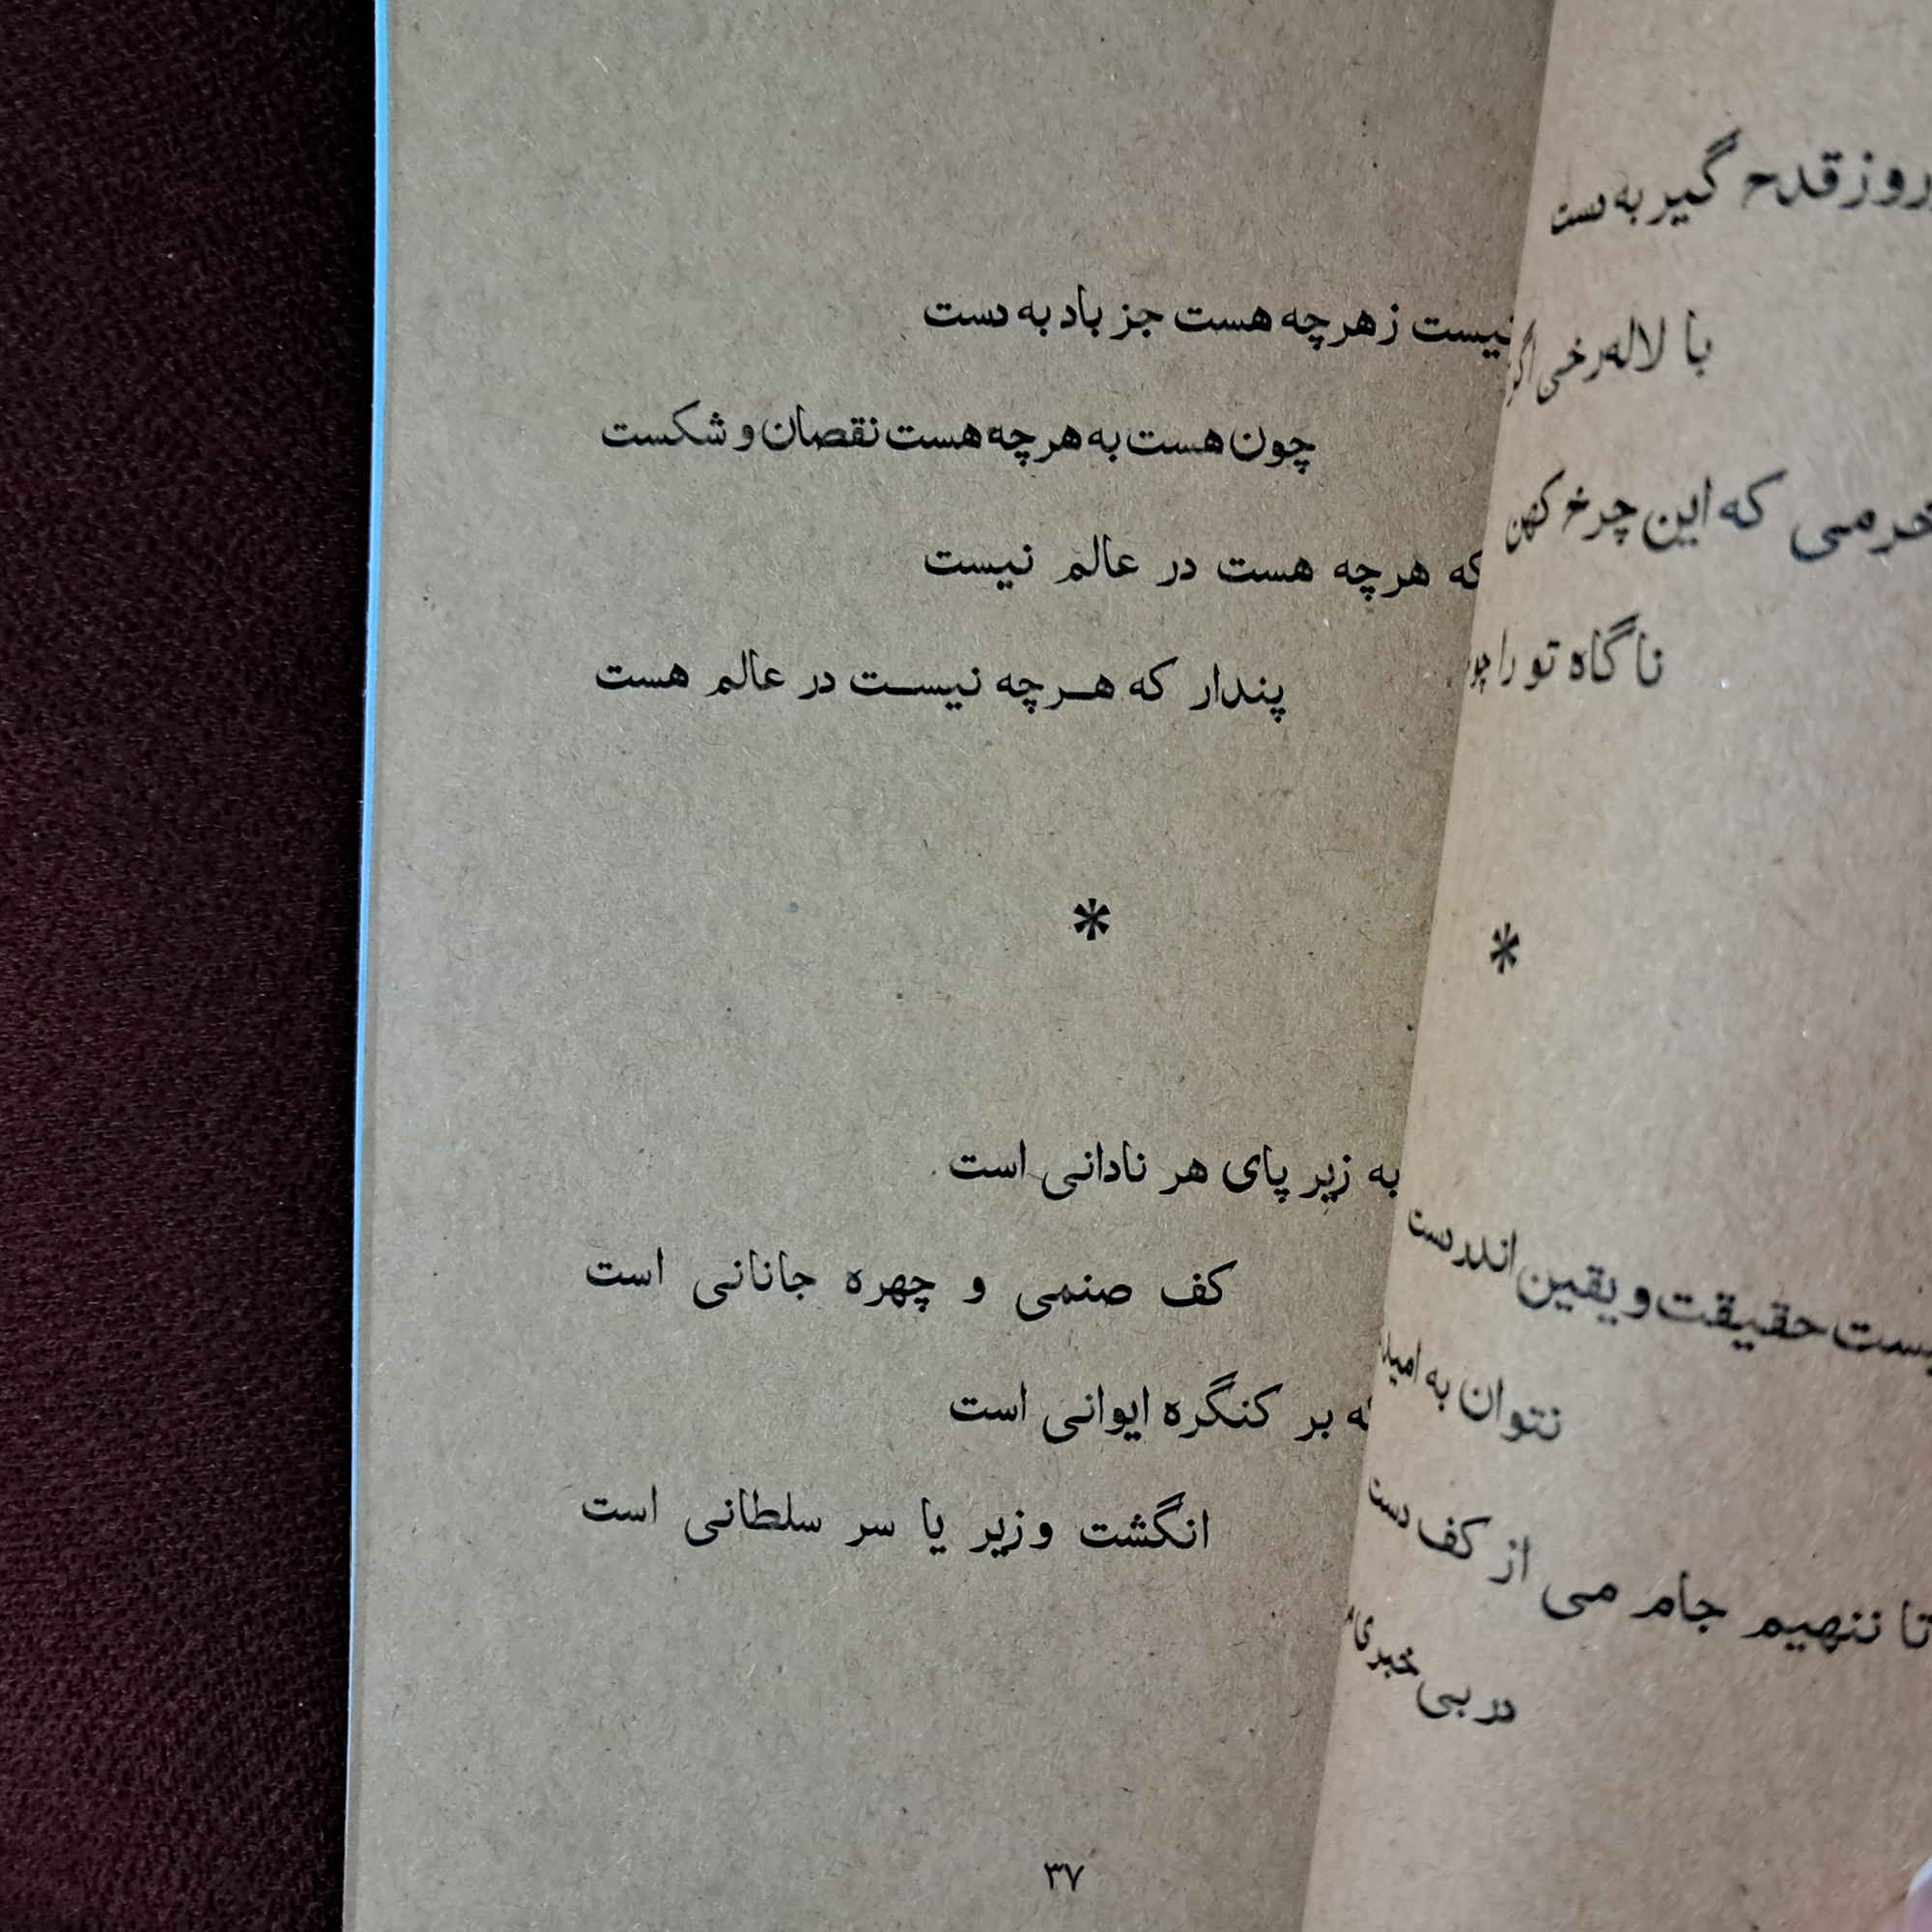 روز قدح گیر به دست
با لاله‌رخی
که این چرخ کهن
ناگاه تو را
*
حقیقت و یقین اندر دست
نتوان به
تا ننهیم جام می از کف دست
در بی‌خبری
نیست ز هرچه هست جز باد به دست
چون هست به هرچه هست نقصان و شکست
که هرچه هست در عالم نیست
پندار که هرچه نیست در عالم هست
*
به زیر پای هر نادانی است
کف صنمی و چهره جانانی است
بر کنگره ایوانی است
انگشت وزیر یا سر سلطانی است
۳۷